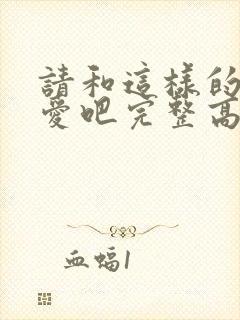 請和這樣的
愛吧完整高
血蝠1